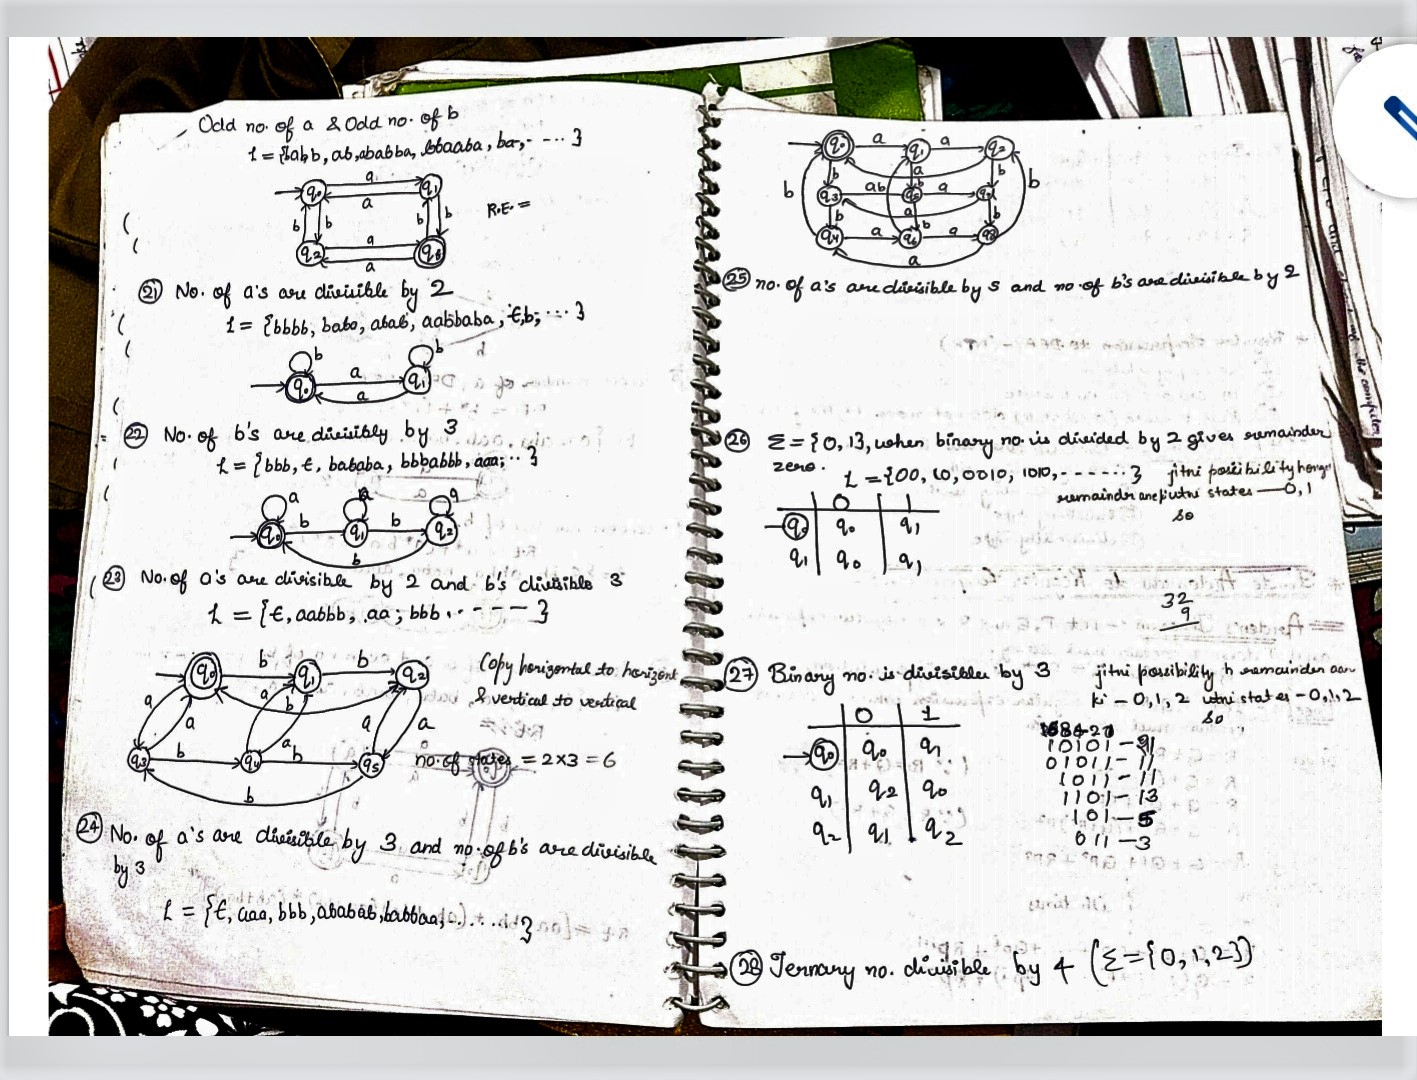 Odd no. of a & Odd no. of b
L = {babb, ab, ababba, bbaaba, ba, - ... }
q0 a q1
a
b b b b
R.E. =
q2 a q3
a
21 No. of a's are divisible by 2
L = {bbbb, baba, abab, aabbaba, ε, b, ... }
b b
q0 a q1
a
22 No. of b's are divisibly by 3
L = {bbb, ε, bababa, bbbabbb, aaa, .. }
a a a
q0 b q1 b q2
b
23 No. of a's are divisible by 2 and b's divisible 3
L = {ε, aabbb, aa, bbb .. - - - - }
q0 b q1 b q2
Copy horizontal to horizont
& vertical to vertical
a a a b a a a
q3 b q4 b q5
no. of states = 2×3 = 6
b
24 No. of a's are divisible by 3 and no. of b's are divisible
by 3
L = {ε, aaa, bbb, ababab, babbaa, ...... }
q0 a q1 a q2
b b a b b b
q3 ab q5 a
b a b b
q4 a q6 a q8
a
25 no. of a's are divisible by 5 and no. of b's are divisible by 2
26 Σ = {0, 1}, when binary no. is divided by 2 gives remainder
zero.
L = {00, 10, 0010, 1010, - - - - - - }
jitni possibility hongi
remainder ane ki utni states — 0, 1
so
0 1
q0 q0 q1
q1 q0 q1
32
9
27 Binary no. is divisible by 3
jitni possibility h remainder aan
ki - 0, 1, 2 utni states - 0, 1, 2
so
0 1
q0 q0 q1
q1 q2 q0
q2 q1 q2
168421
10101 -
01011 - 11
1011 - 11
1101 - 13
101 - 5
011 - 3
28 Ternary no. divisible by 4 (Σ = {0, 1, 2})